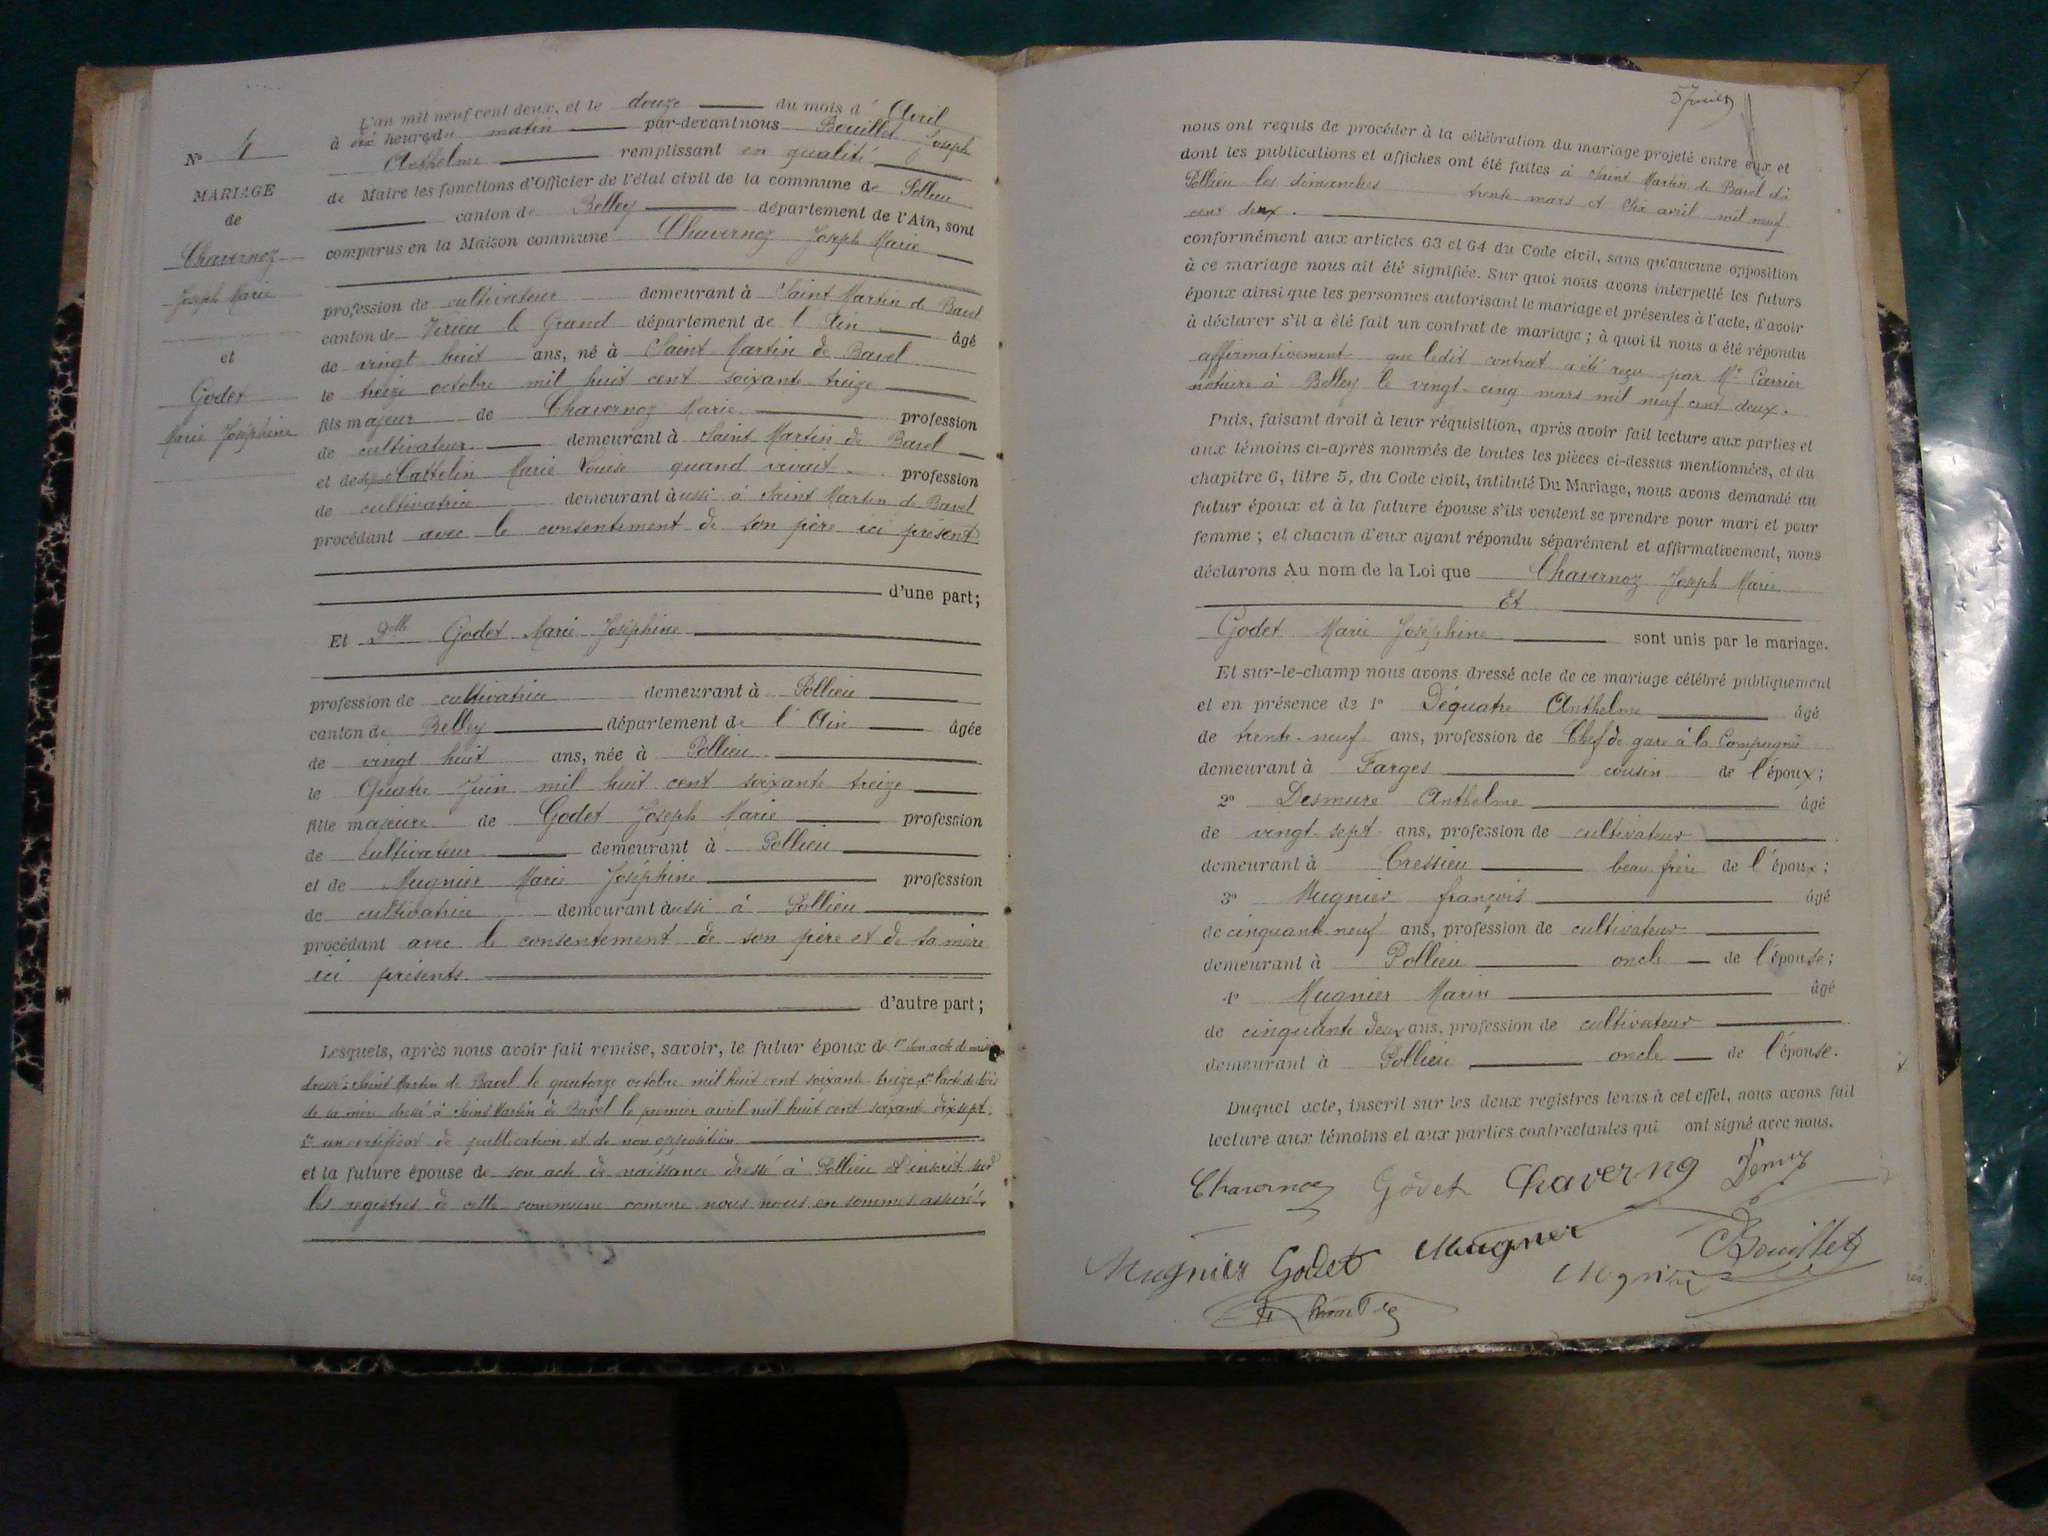 N° 4
MARIAGE
de
Chavernoz
Joseph Marie
et
Godet
Marie Joséphine
L'an mil neuf cent deux, et le douze du mois d'Avril
à dix heures du matin par-devant nous Bouillet Joseph
Anthelme remplissant en qualité
de Maire les fonctions d'Officier de l'état civil de la commune de Pollieu
canton de Belley département de l'Ain, sont
comparus en la Maison commune Chavernoz Joseph Marie
profession de cultivateur demeurant à Saint Martin de Bavel
canton de Virieu le Grand département de l'Ain âgé
de vingt huit ans, né à Saint Martin de Bavel
le treize octobre mil huit cent soixante treize
fils majeur de Chavernoz Marie profession
de cultivateur demeurant à Saint Martin de Bavel
et de Cattelin Marie Louise quand vivait profession
de cultivatrice demeurant aussi à Saint Martin de Bavel
procédant avec le consentement de son père ici présent
d'une part;
Et Dlle Godet Marie Joséphine
profession de cultivatrice demeurant à Pollieu
canton de Belley département de l'Ain âgée
de vingt huit ans, née à Pollieu
le Quatre Juin mil huit cent soixante treize
fille majeure de Godet Joseph Marie profession
de cultivateur demeurant à Pollieu
et de Mugnier Marie Joséphine profession
de cultivatrice demeurant aussi à Pollieu
procédant avec le consentement de son père et de sa mère
ici présents.
d'autre part;
Lesquels, après nous avoir fait remise, savoir, le futur époux de 1° son acte de
dressé à Saint Martin de Bavel le quatorze octobre mil huit cent soixante treize 2° l'acte de décès
de sa mère dressé à Saint Martin de Bavel le premier avril mil huit cent soixante dix sept.
3° un certificat de publication et de non opposition
et la future épouse de son acte de naissance dressé à Pollieu et inscrit sur
les registres de cette commune comme nous nous en sommes assurés.
nous ont requis de procéder à la célébration du mariage projeté entre eux et
dont les publications et affiches ont été faites à Saint Martin de Bavel et à
Pollieu les dimanches trente mars et six avril mil neuf
cent deux.
conformément aux articles 63 et 64 du Code civil, sans qu'aucune opposition
à ce mariage nous ait été signifiée. Sur quoi nous avons interpellé les futurs
époux ainsi que les personnes autorisant le mariage et présentes à l'acte, d'avoir
à déclarer s'il a été fait un contrat de mariage ; à quoi il nous a été répondu
affirmativement que ledit contrat a été reçu par Me Carrier
notaire à Belley le vingt-cinq mars mil neuf cent deux.
Puis, faisant droit à leur réquisition, après avoir fait lecture aux parties et
aux témoins ci-après nommés de toutes les pièces ci-dessus mentionnées, et du
chapitre 6, titre 5, du Code civil, intitulé Du Mariage, nous avons demandé au
futur époux et à la future épouse s'ils veulent se prendre pour mari et pour
femme ; et chacun d'eux ayant répondu séparément et affirmativement, nous
déclarons Au nom de la Loi que Chavernoz Joseph Marie
Et
Godet Marie Joséphine sont unis par le mariage.
Et sur-le-champ nous avons dressé acte de ce mariage célébré publiquement
et en présence de 1° Déquatre Anthelme âgé
de trente-neuf ans, profession de Chef de gare à la Compagnie
demeurant à Farges cousin de l'époux;
2° Desmure Anthelme âgé
de vingt-sept ans, profession de cultivateur
demeurant à Cressieu beau frère de l'époux;
3° Mugnier françois âgé
de cinquante neuf ans, profession de cultivateur
demeurant à Pollieu oncle de l'épouse;
4° Mugnier Marin âgé
de cinquante deux ans, profession de cultivateur
demeurant à Pollieu oncle de l'épouse.
Duquel acte, inscrit sur les deux registres tenus à cet effet, nous avons fait
lecture aux témoins et aux parties contractantes qui ont signé avec nous.
Chavernoz Godet Chavernoz
Mugnier Godet Mugnier Bouillet
Mugnier